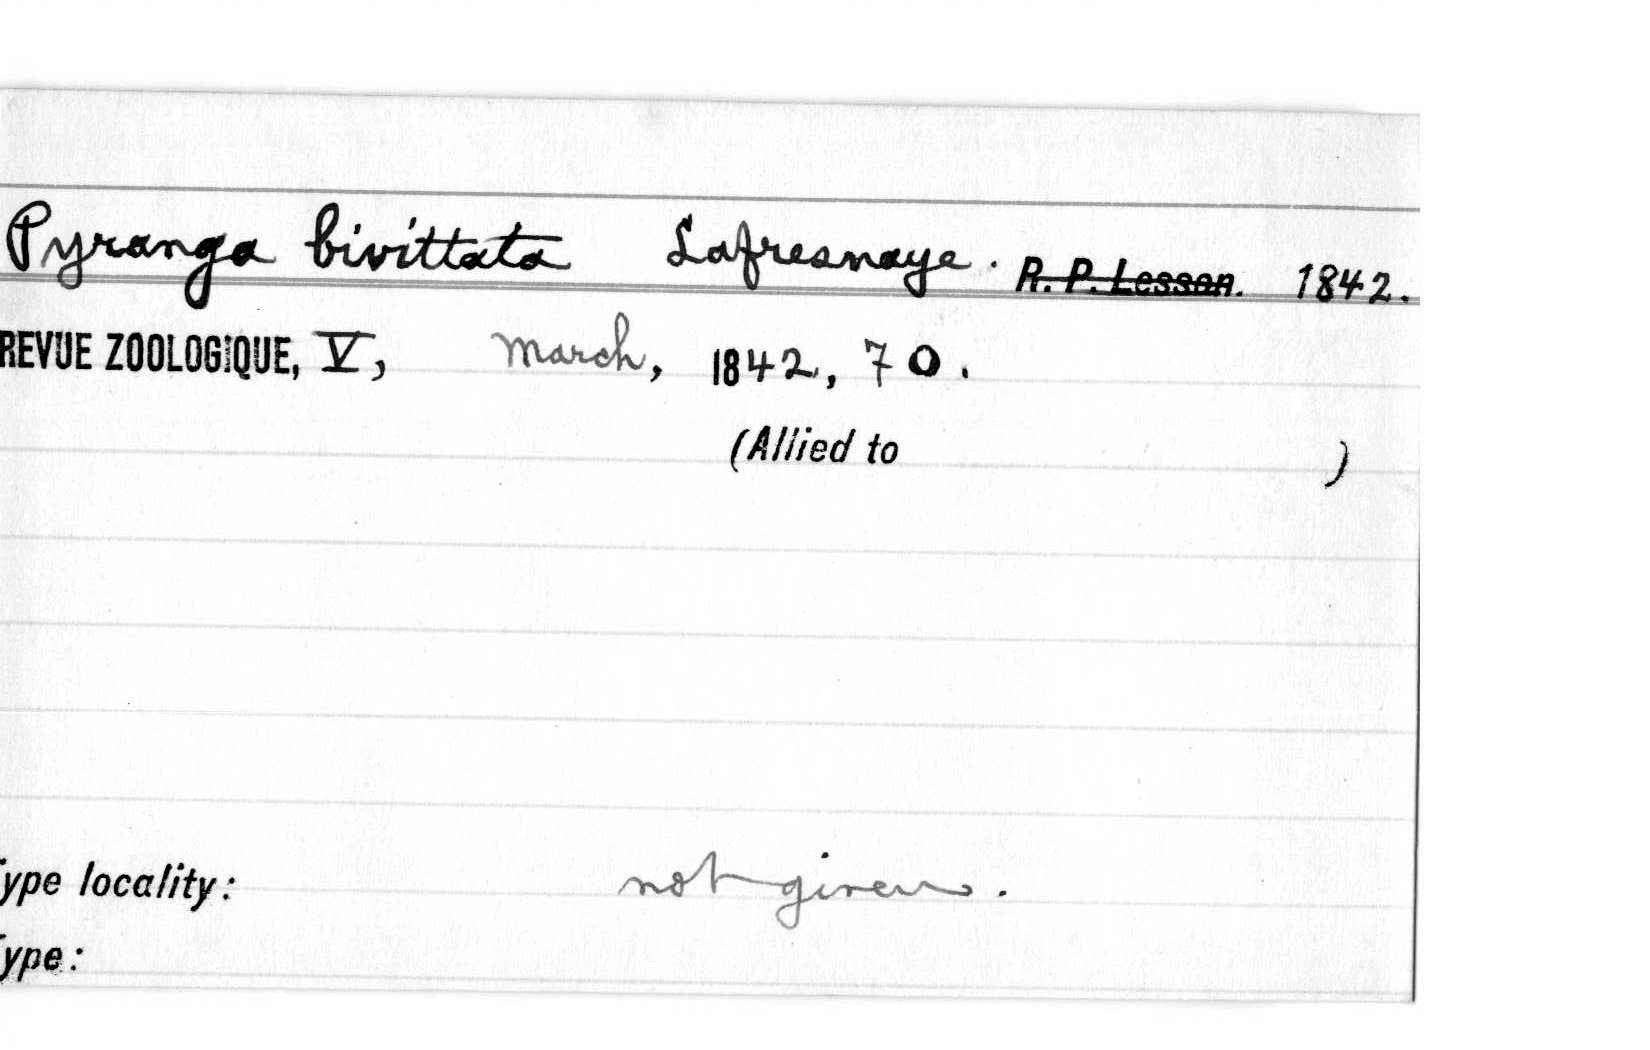 Pyranga bivittata Lafresnaye. R. P. Lesson. 1842.
REVUE ZOOLOGIQUE, V, March, 1842, 70.
(Allied to )
ype locality: not given.
ype: